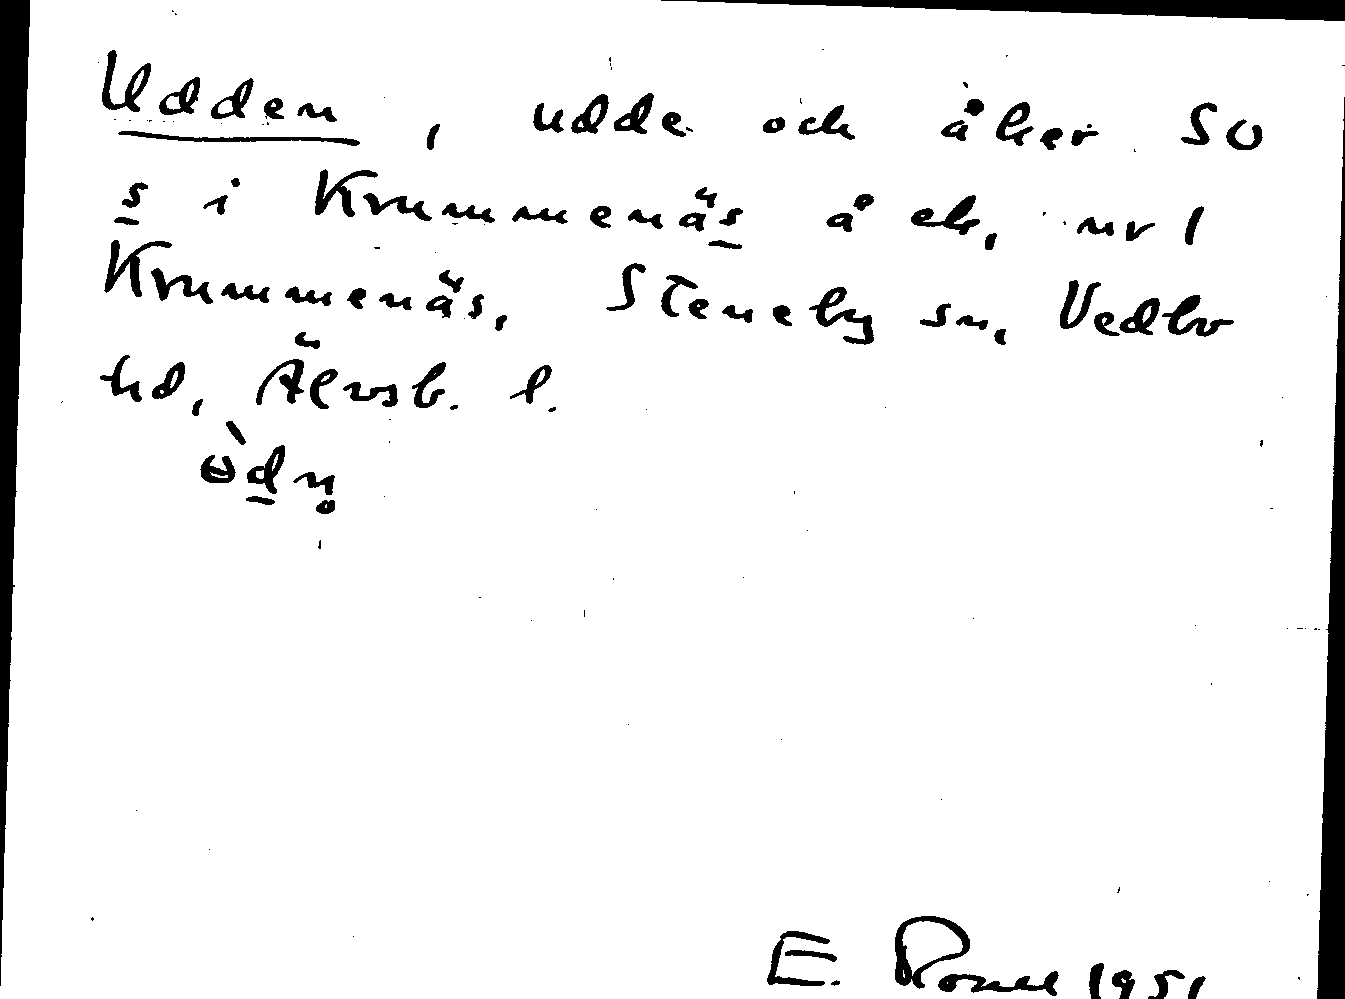 Udden, udde och åker SO
s i Krummenäs å ek. nr 1
Krummenäs, Steneby sn, Vedbo
hd, Älvsb. l.
ɵ̀dn̥
E. 1951